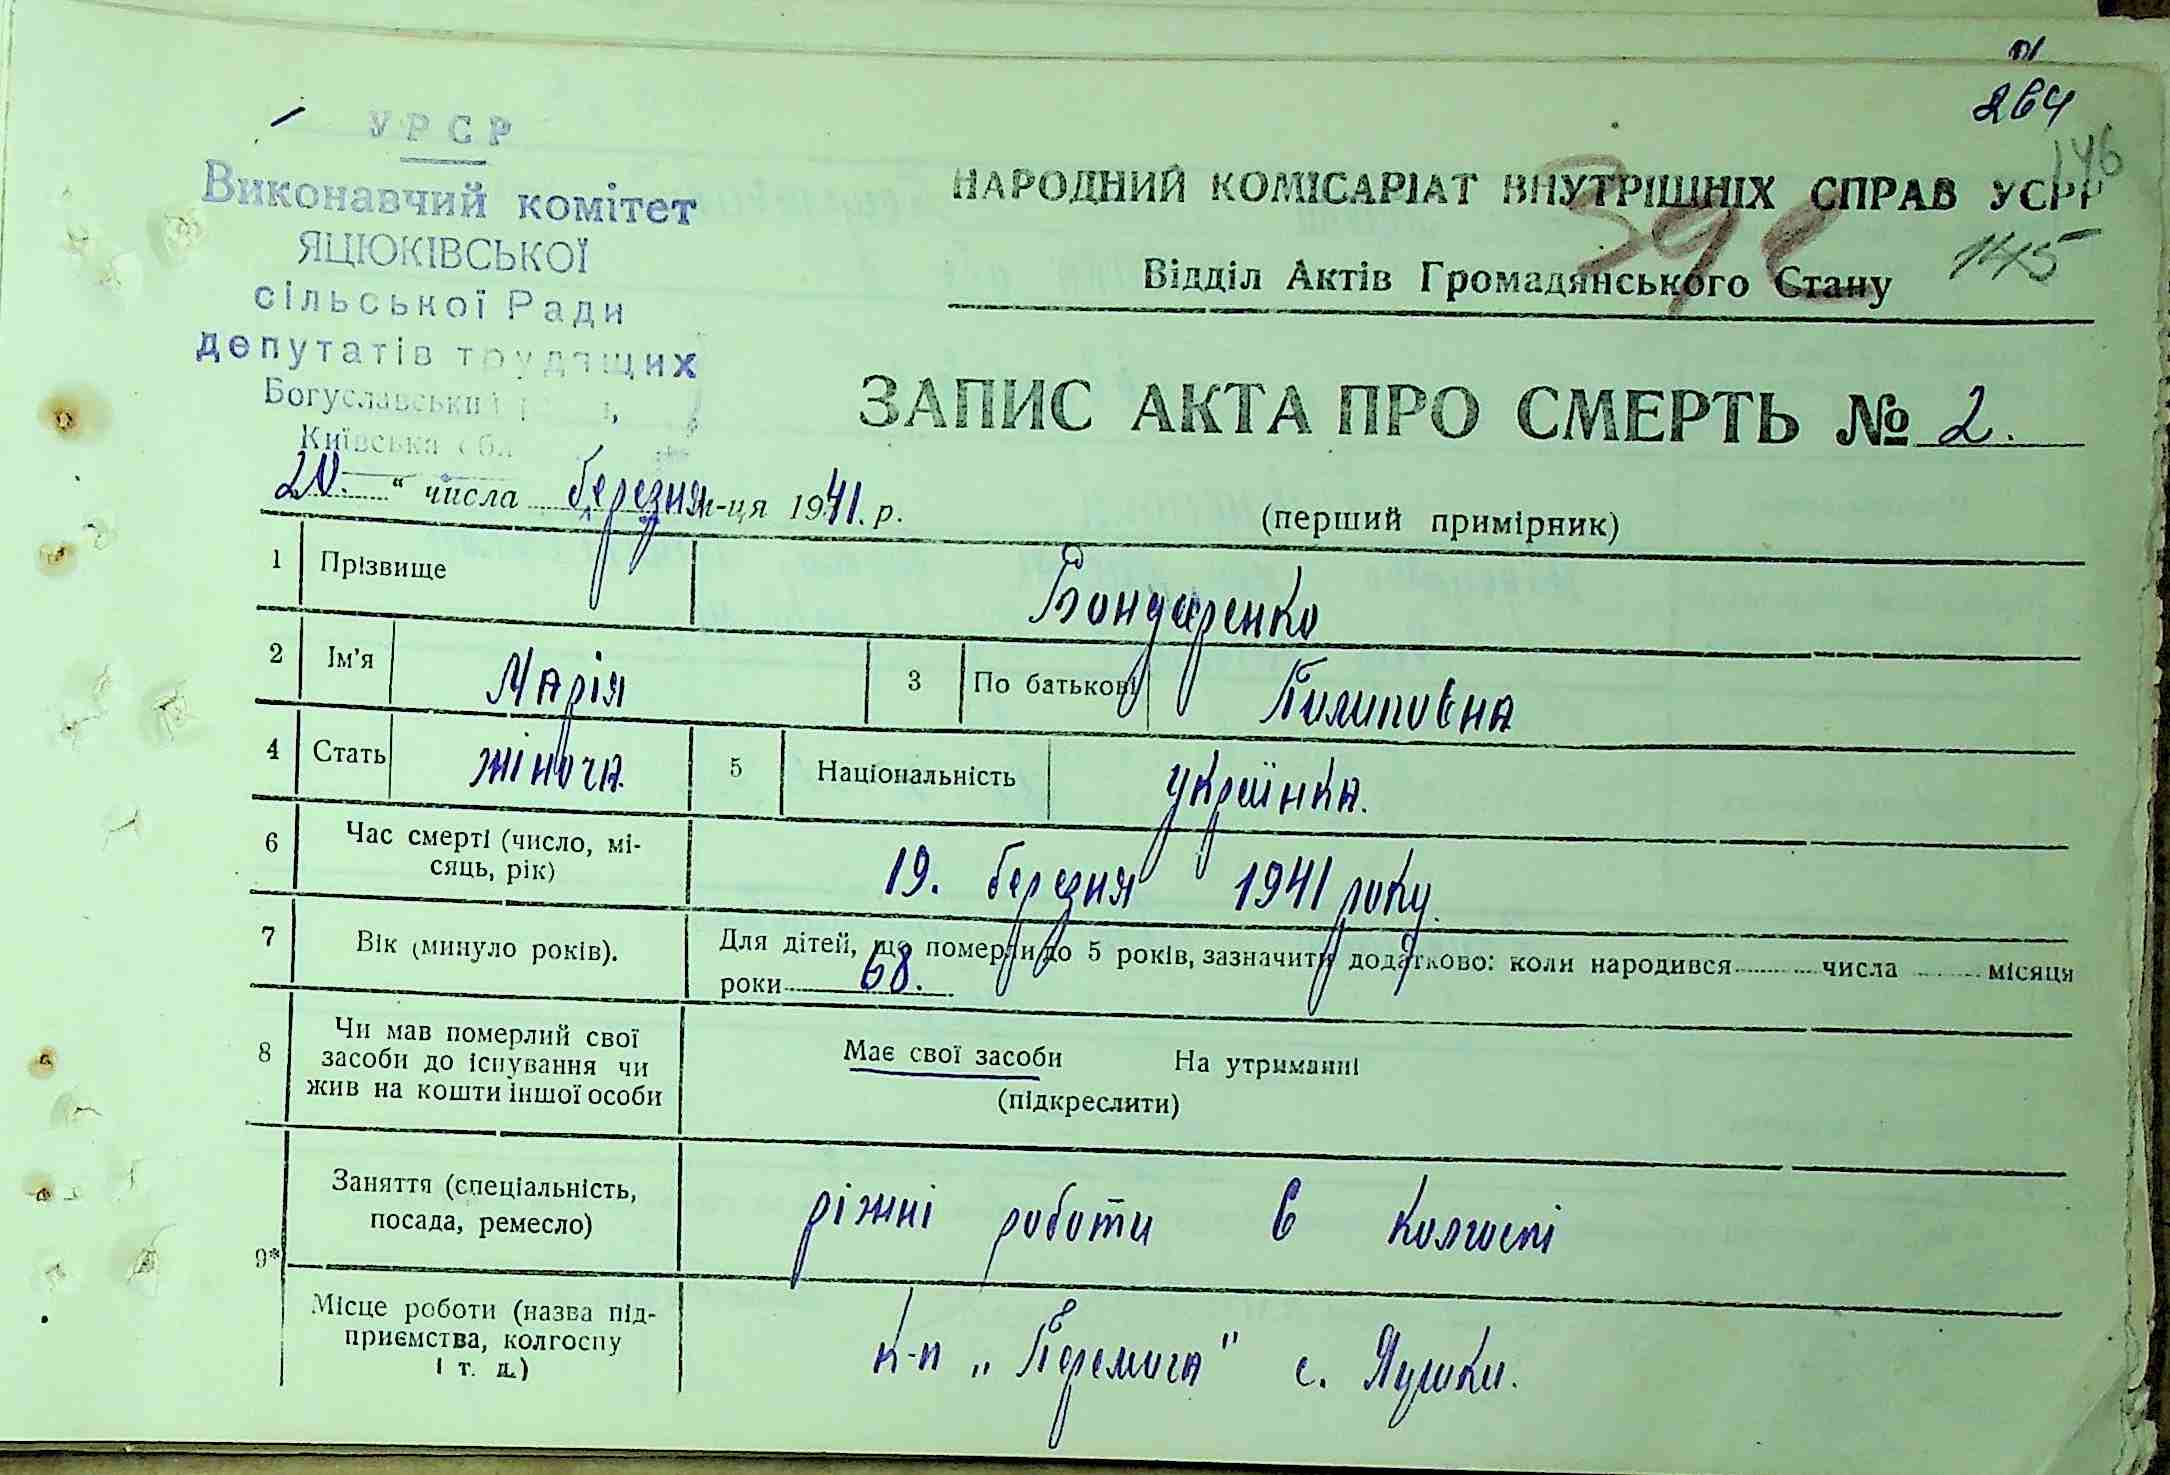 264
146
145
УРСР
Виконавчий комітет
ЯЦЮКІВСЬКОЇ
сільської Ради
депутатів трудящих
Богуславський
Київська обл
НАРОДНИЙ КОМІСАРІАТ ВНУТРІШНІХ СПРАВ УСРР
Відділ Актів Громадянського Стану
ЗАПИС АКТА ПРО СМЕРТЬ № 2.
20. " числа березня м-ця 1941. р.
(перший примірник)
1 Прізвище Бондаренко
2 Ім'я Марія 3 По батькові Пилиповна
4 Стать жіноча. 5 Національність українка.
6 Час смерті (число, мі-
сяць, рік) 19. березня 1941 року.
7 Вік (минуло років). Для дітей, що померли до 5 років, зазначити додатково: коли народився числа місяця
роки 68.
8 Чи мав померлий свої
засоби до існування чи
жив на кошти іншої особи
Має свої засоби На утриманні
(підкреслити)
9* Заняття (спеціальність,
посада, ремесло) ріжні роботи в колгоспі
Місце роботи (назва під-
приємства, колгоспу
і т. д.) к-п „Перемога" с.